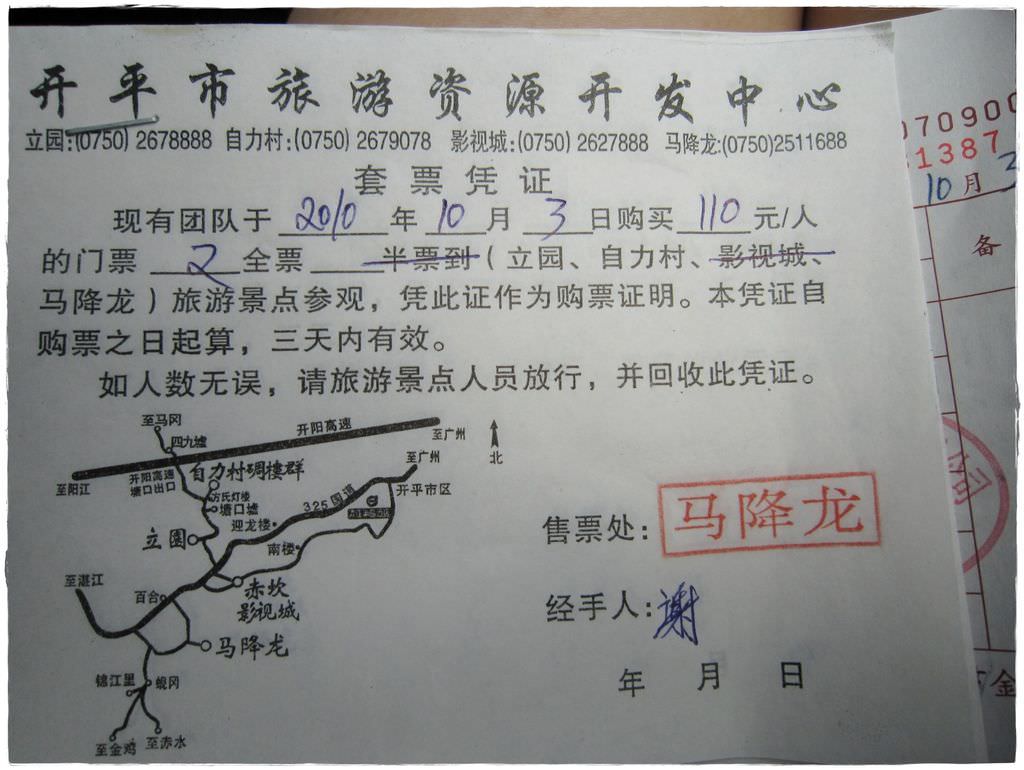 开平市旅游资源开发中心
立园:(0750) 2678888 自力村:(0750) 2679078 影视城:(0750) 2627888 马降龙:(0750)2511688
套票凭证
现有团队于 2010 年 10 月 3 日购买 110 元/人
的门票 2 全票 半票到（立园、自力村、影视城、
马降龙）旅游景点参观，凭此证作为购票证明。本凭证自
购票之日起算，三天内有效。
如人数无误，请旅游景点人员放行，并回收此凭证。
至马冈
四九墟
开阳高速
至广州
北
至阳江
开阳高速
塘口出口
自力村碉樓群
至广州
方氏灯楼
塘口墟
325国道
开平市区
迎龙楼
立園
南楼
至湛江
百合
赤坎
影视城
马降龙
锦江里
蚬冈
至金鸡
至赤水
售票处：
马降龙
经手人：谢
年 月 日
070900
1387
10 月 3
备
金